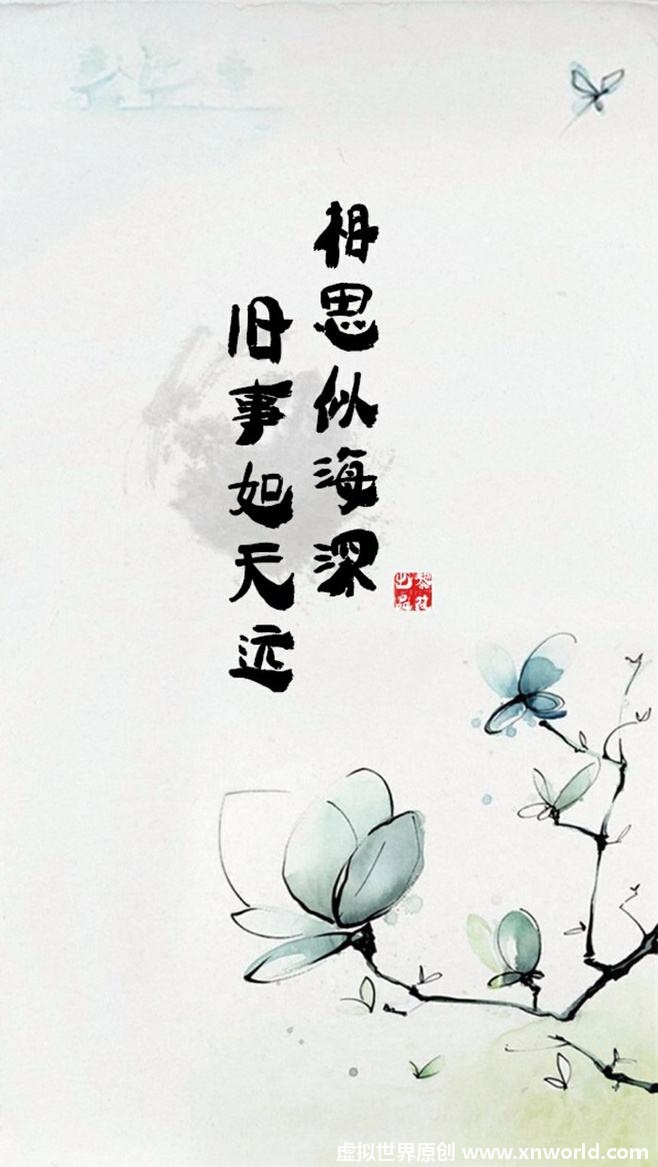 相思似海深
旧事如天远
虚拟世界原创 www.xnworld.com